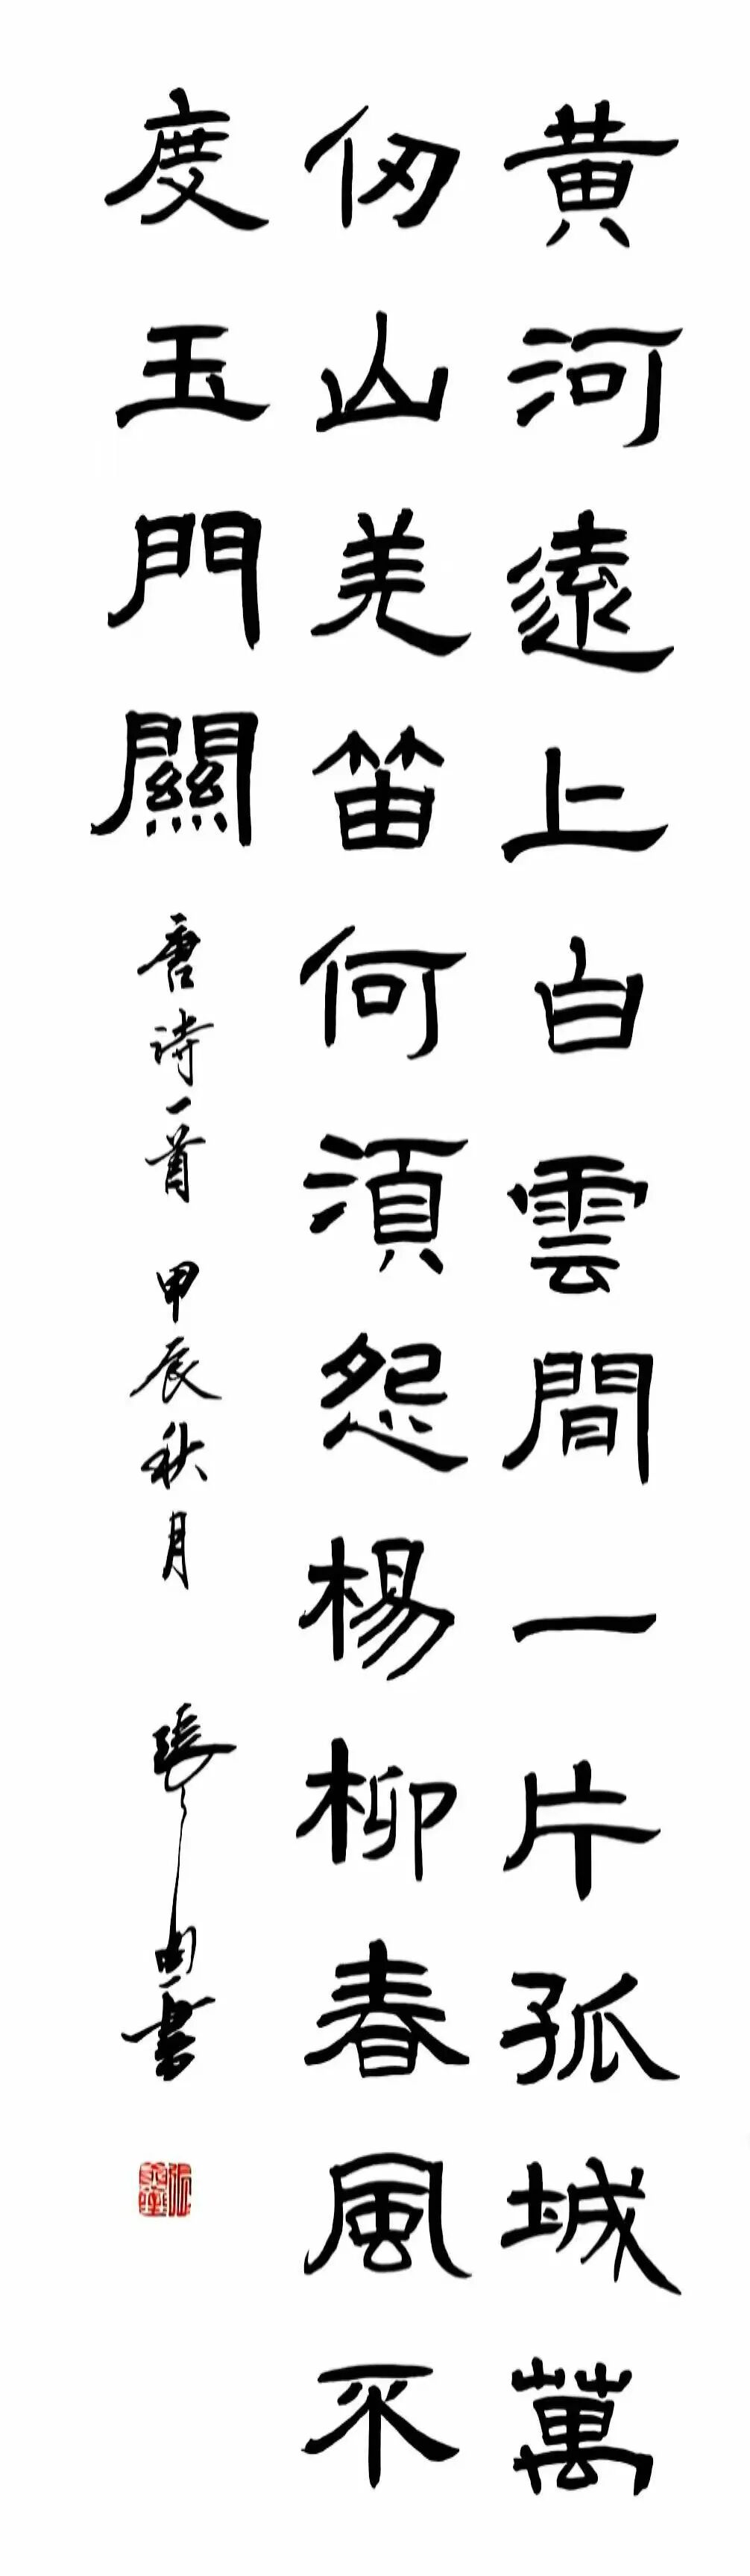 黃河遠上白雲間一片孤城萬
仞山羌笛何須怨楊柳春風不
度玉門關
唐詩一首 甲辰秋月 張
書